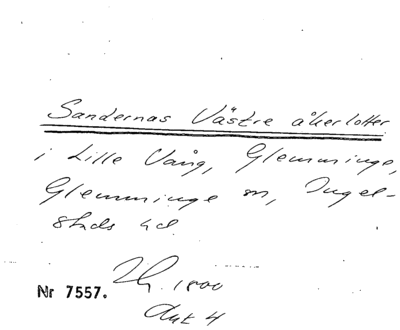 Sandernas Västre åkerlotter
i Lille Vång, Glemminge,
Glemminge sn, Ingel-
stads hd.
1800
Nr 7557.
Akt 4